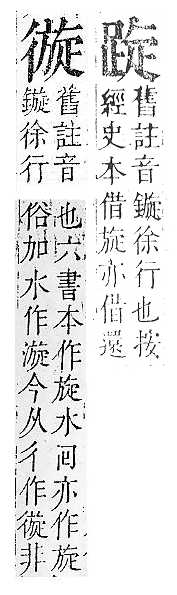 舊註音鏇徐行也按
經史本借旋亦借還
舊註音
鏇徐行
也六書本作旋水囘亦作旋
俗加水作漩今从彳作非